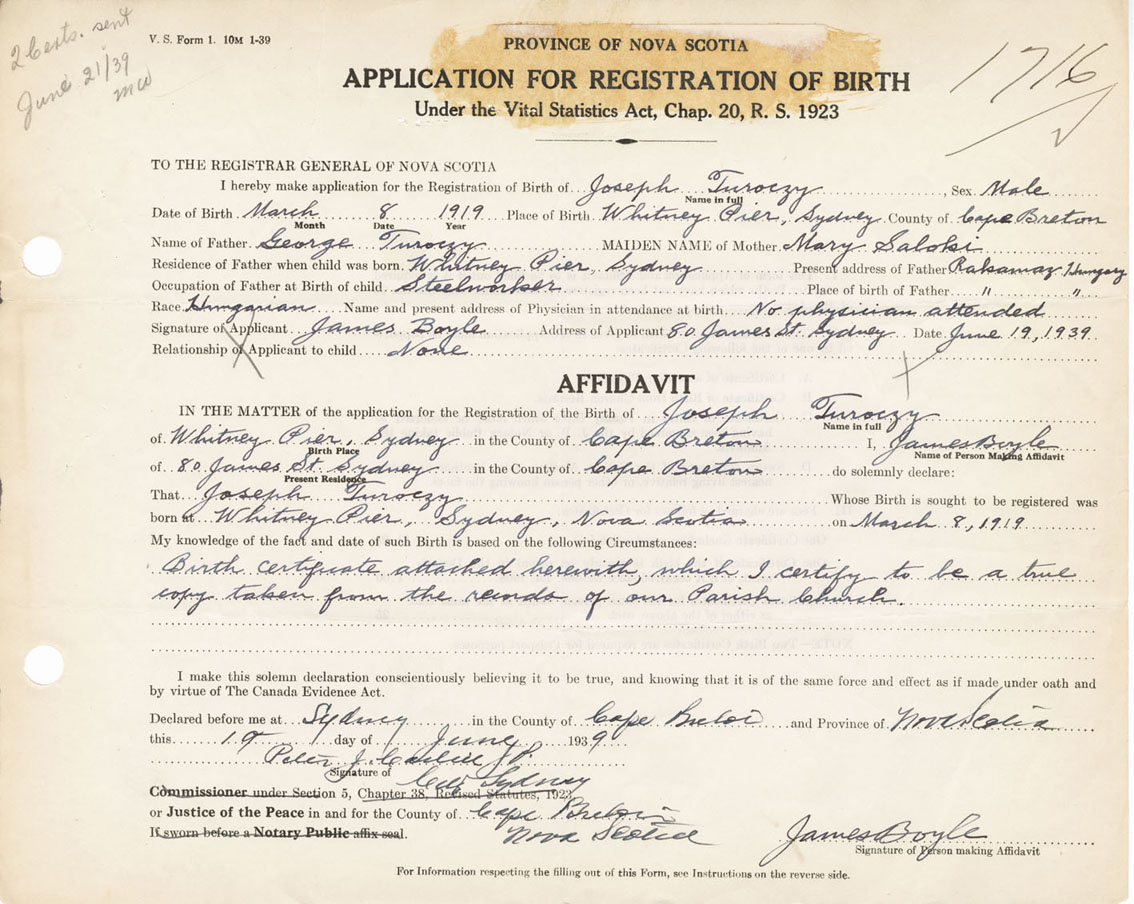 2 Certs. sent
June 21/39
mw
V. S. Form 1. 10M 1-39
1716
PROVINCE OF NOVA SCOTIA
APPLICATION FOR REGISTRATION OF BIRTH
Under the Vital Statistics Act, Chap. 20, R. S. 1923
TO THE REGISTRAR GENERAL OF NOVA SCOTIA
I hereby make application for the Registration of Birth of Joseph Turoczy, Sex Male
Name in full
Date of Birth March 8 1919 Place of Birth Whitney Pier, Sydney County of Cape Breton
Month Date Year
Name of Father George Turoczy MAIDEN NAME of Mother Mary Saloki
Residence of Father when child was born Whitney Pier, Sydney Present address of Father Rakamaz Hungary
Occupation of Father at Birth of child Steelworker Place of birth of Father " "
Race Hungarian Name and present address of Physician in attendance at birth No physician attended
Signature of Applicant James Boyle Address of Applicant 80 James St. Sydney Date June 19, 1939
Relationship of Applicant to child None
AFFIDAVIT
IN THE MATTER of the application for the Registration of the Birth of Joseph Turoczy
Name in full
of Whitney Pier, Sydney in the County of Cape Breton I, James Boyle
Birth Place Name of Person Making Affidavit
of 80 James St. Sydney in the County of Cape Breton do solemnly declare:
Present Residence
That Joseph Turoczy Whose Birth is sought to be registered was
born at Whitney Pier, Sydney, Nova Scotia on March 8, 1919
My knowledge of the fact and date of such Birth is based on the following Circumstances:
Birth certificate attached herewith, which I certify to be a true
copy taken from the records of our Parish Church.
I make this solemn declaration conscientiously believing it to be true, and knowing that it is of the same force and effect as if made under oath and
by virtue of The Canada Evidence Act.
Declared before me at Sydney in the County of Cape Breton and Province of Nova Scotia
this 19 day of June 1939
Peter J. J.P.
Signature of City Sydney
Commissioner under Section 5, Chapter 38, Revised Statutes, 1923
or Justice of the Peace in and for the County of Cape Breton
If sworn before a Notary Public affix seal. Nova Scotia
James Boyle
Signature of Person making Affidavit
For Information respecting the filling out of this Form, see Instructions on the reverse side.